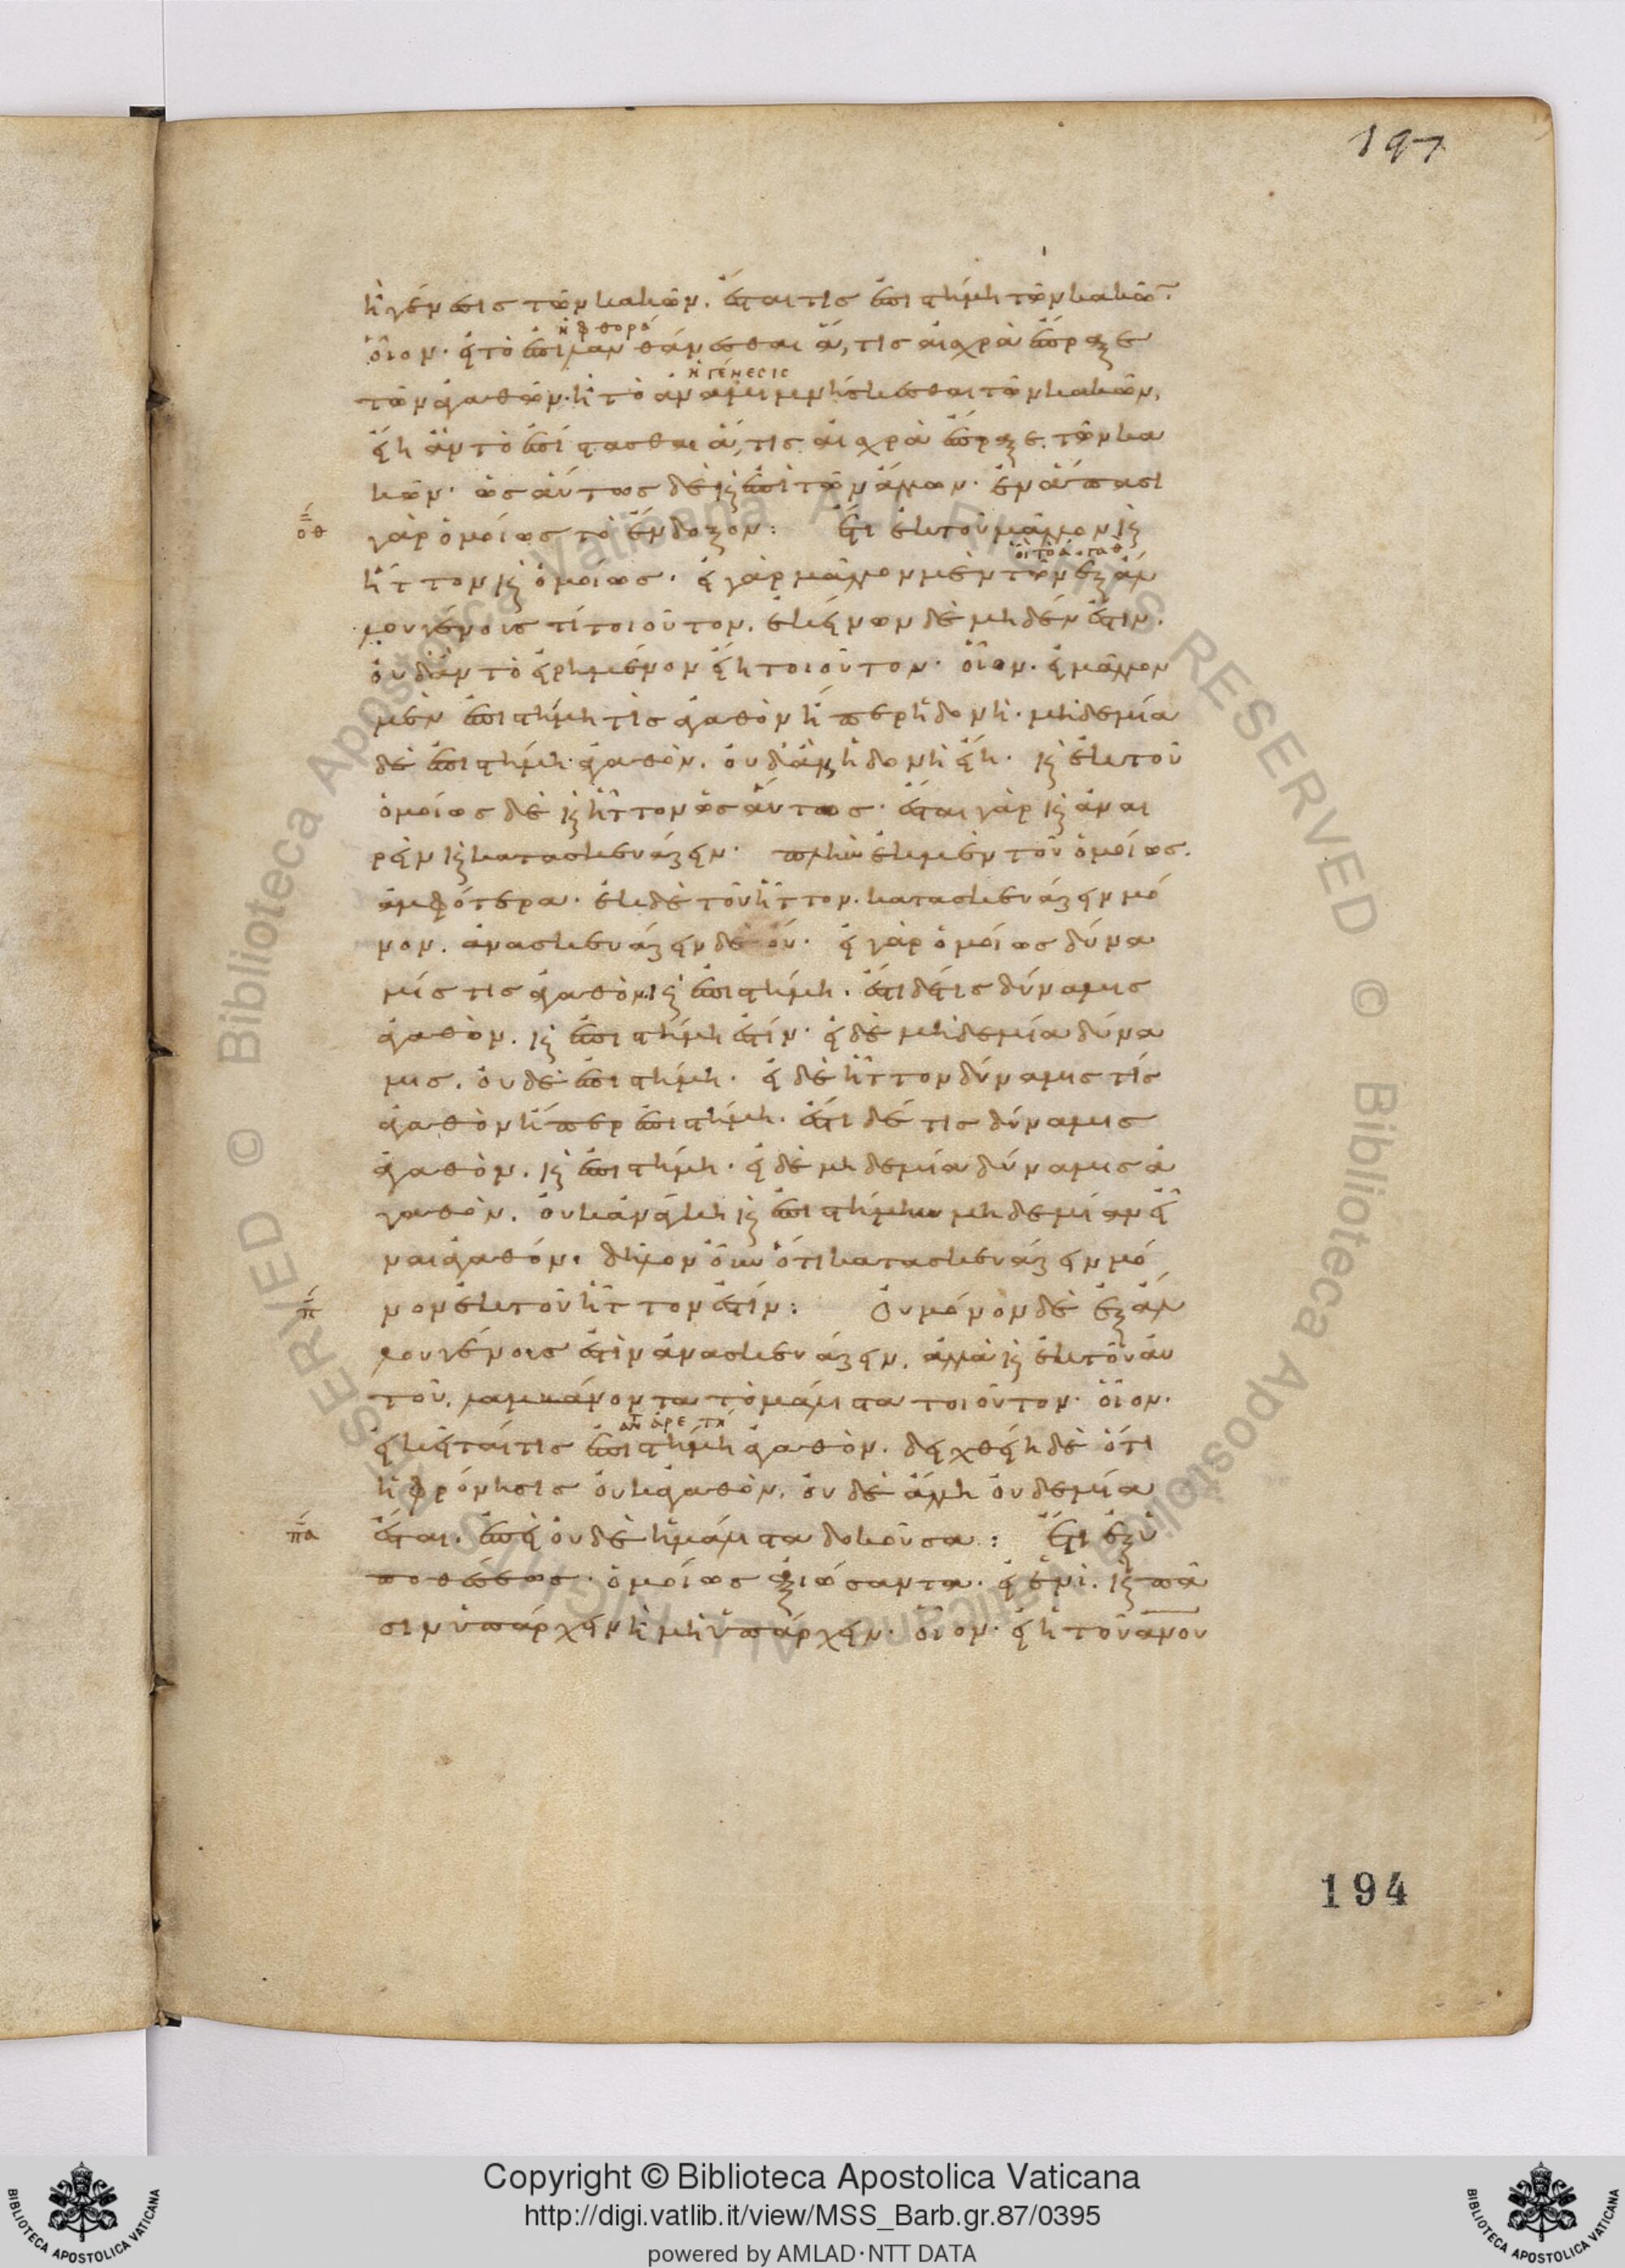 197
ἡ γένεσις τῶν κακῶν. ἔσται τις ἐπιστήμη τῶν κακῶν.
ἡ φθορά
οἷον· εἰ τὸ ἐπιλανθάνεσθαι αἰσχρὰ
ἡ γένεσις
τῶν ἀγαθῶν· ἢ τὸ ἀναμιμνήσκεσθαι τῶν κακῶν,
εἴη ἂν τὸ ἐπίστασθαι αἰσχρὰ τῶν κα
κῶν· ὡσαύτως δὲ καὶ ἐπὶ τῶν ἄλλων· ἐν ἅπασι
οθ
γὰρ ὁμοίως τὸ ἔνδοξον: Ἔτι ἐκ τοῦ μᾶλλον καὶ
ἧττον καὶ ὁμοίως· εἰ γὰρ μᾶλλον μὲν τῶν ἐξ ἄλ
λου γένους τί τοιοῦτον. ἐκείνων δὲ μηδέν ἐστιν.
οὐδ' ἂν τὸ εἰρημένον εἴη τοιοῦτον· οἷον· εἰ μᾶλλον
μὲν ἐπιστήμη τὶς ἀγαθὸν ἤπερ ἡδονὴ· μηδεμία
δὲ ἐπιστήμη ἀγαθὸν. οὐδ' ἂν ἡδονὴ εἴη· καὶ ἐκ τοῦ
ὁμοίως δὲ καὶ ἧττον ὡσαύτως· ἔσται γὰρ καὶ ἀναι
ρεῖν καὶ κατασκευάζειν· πλὴν ἐκ μὲν τοῦ ὁμοίως.
ἀμφότερα· ἐκ δὲ τοῦ ἧττον. κατασκευάζειν μό
νον. ἀνασκευάζειν δὲ οὔ· εἰ γὰρ ὁμοίως δύνα
μίς τις ἀγαθὸν καὶ ἐπιστήμη. ἔστι δέ τις δύναμις
ἀγαθὸν. καὶ ἐπιστήμη ἐστίν· εἰ δὲ μηδεμία δύνα
μις. οὐδὲ ἐπιστήμη· εἰ δὲ ἧττον δύναμις τίς
ἀγαθὸν ἤπερ ἐπιστήμη. ἔστι δέ τις δύναμις
ἀγαθὸν. καὶ ἐπιστήμη· εἰ δὲ μηδεμία δύναμις ἀ
γαθὸν. οὐκ ἀνάγκη καὶ ἐπιστήμην μηδεμίαν εἶ
ναι ἀγαθόν. δῆλον οὖν ὅτι κατασκευάζειν μό
π
νον ἐκ τοῦ ἧττον ἐστίν: Οὐ μόνον δὲ ἐξ ἄλ
λου γένους ἐστὶν ἀνασκευάζειν. ἀλλὰ καὶ ἐκ τοῦ αὐ
τοῦ. λαμβάνοντα τὸ μάλιστα τοιοῦτον· οἷον·
εἰ κεῖται τις ἐπιστήμη ἀγαθὸν. δειχθείη δὲ ὅτι
ἡ φρόνησις οὐκ ἀγαθὸν. οὐδὲ ἄλλη οὐδεμία
πα
ἔσται. ἐπεὶ οὐδὲ ἡ μάλιστα δοκοῦσα: Ἔτι ἐξ ὑ
ποθέσεως· ὁμοίως ἀξιώσαντα. εἰ ἑνὶ. καὶ πᾶ
σιν ὑπάρχειν ἢ μὴ ὑπάρχειν· οἷον· εἰ ἡ τοῦ ἀνου
194
Copyright © Biblioteca Apostolica Vaticana
http://digi.vatlib.it/view/MSS_Barb.gr.87/0395
powered by AMLAD·NTT DATA